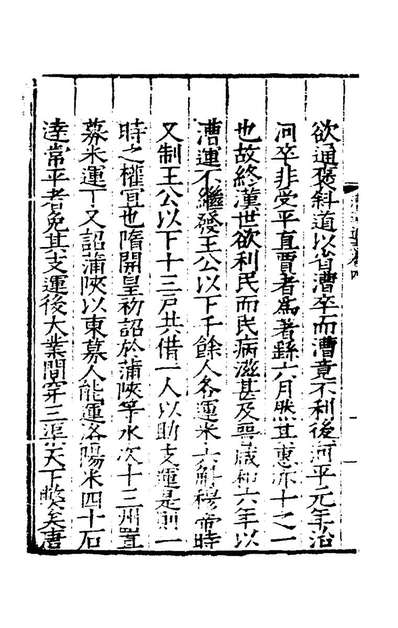 欲通褒斜道以省漕卒而漕竟不利後河平元年治
河卒非受平直賈者爲著繇六月然其惠亦十之一
也故終漢世欲利民而民病滋甚及晉咸和六年以
漕運不繼發王公以下千餘人各運米六斛穆帝時
又制王公以下十三戶共借一人以助支運是則一
時之權宜也隋開皇初詔於蒲陝等水次十三州置
募米運丁又詔蒲陝以東募人能運洛陽米四十石
達常平者免其支運後大業間穿三渠天下㢢矣唐